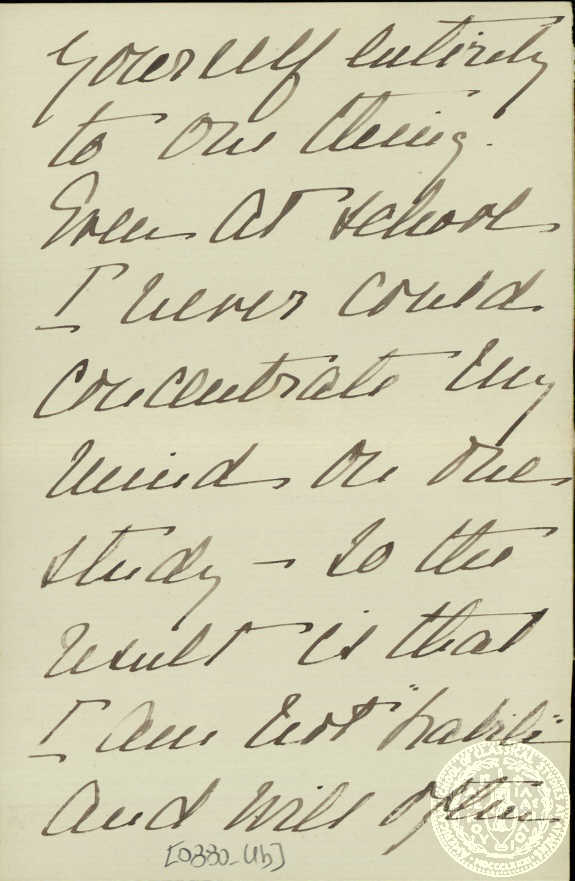 yourself entirely
to one thing.
Even at school
I never could
concentrate my
mind on one
study – so the
result is that
I am not "habile"
and will often
[0380_Ub]